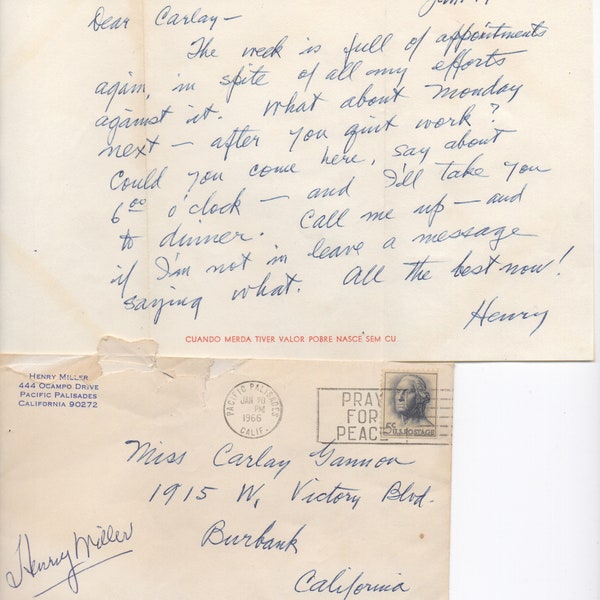 Dear Carlay—
The week is full of appointments
again, in spite of all my efforts
against it. What about Monday
next — after you quit work?
Could you come here, say about
6 00 o'clock — and I'll take you
to dinner. Call me up — and
if I'm not in leave a message
saying what. All the best now!
Henry
CUANDO MERDA TIVER VALOR POBRE NASCE SEM CU
HENRY MILLER
444 OCAMPO DRIVE
PACIFIC PALISADES
CALIFORNIA 90272
PACIFIC PALISADES
JAN 10
PM
1966
CALIF.
PRAY
FOR
PEACE
5¢ U.S. POSTAGE
Miss Carlay Gannon
1915 W. Victory Blvd.
Burbank
California
Henry Miller